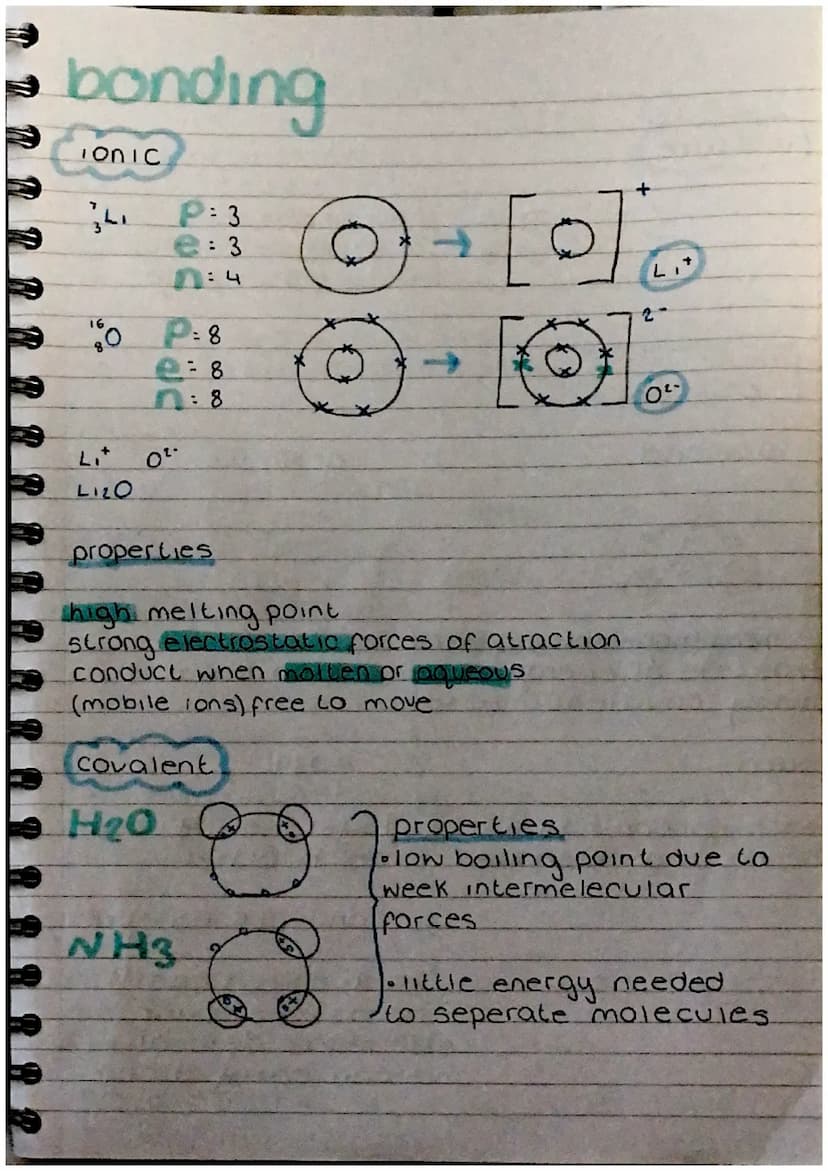 bonding
ionic
⁷₃Li p = 3
e : 3
n : 4
+
Li⁺
¹⁶₈O p = 8
e = 8
n : 8
2-
O²⁻
Li⁺ O²⁻
Li2O
properties
high melting point
strong electrostatic forces of atraction
conduct when molten or aqueous
(mobile ions) free to move
covalent
H2O
NH3
properties
• low boiling point due to
week intermelecular
forces
• little energy needed
to seperate molecules